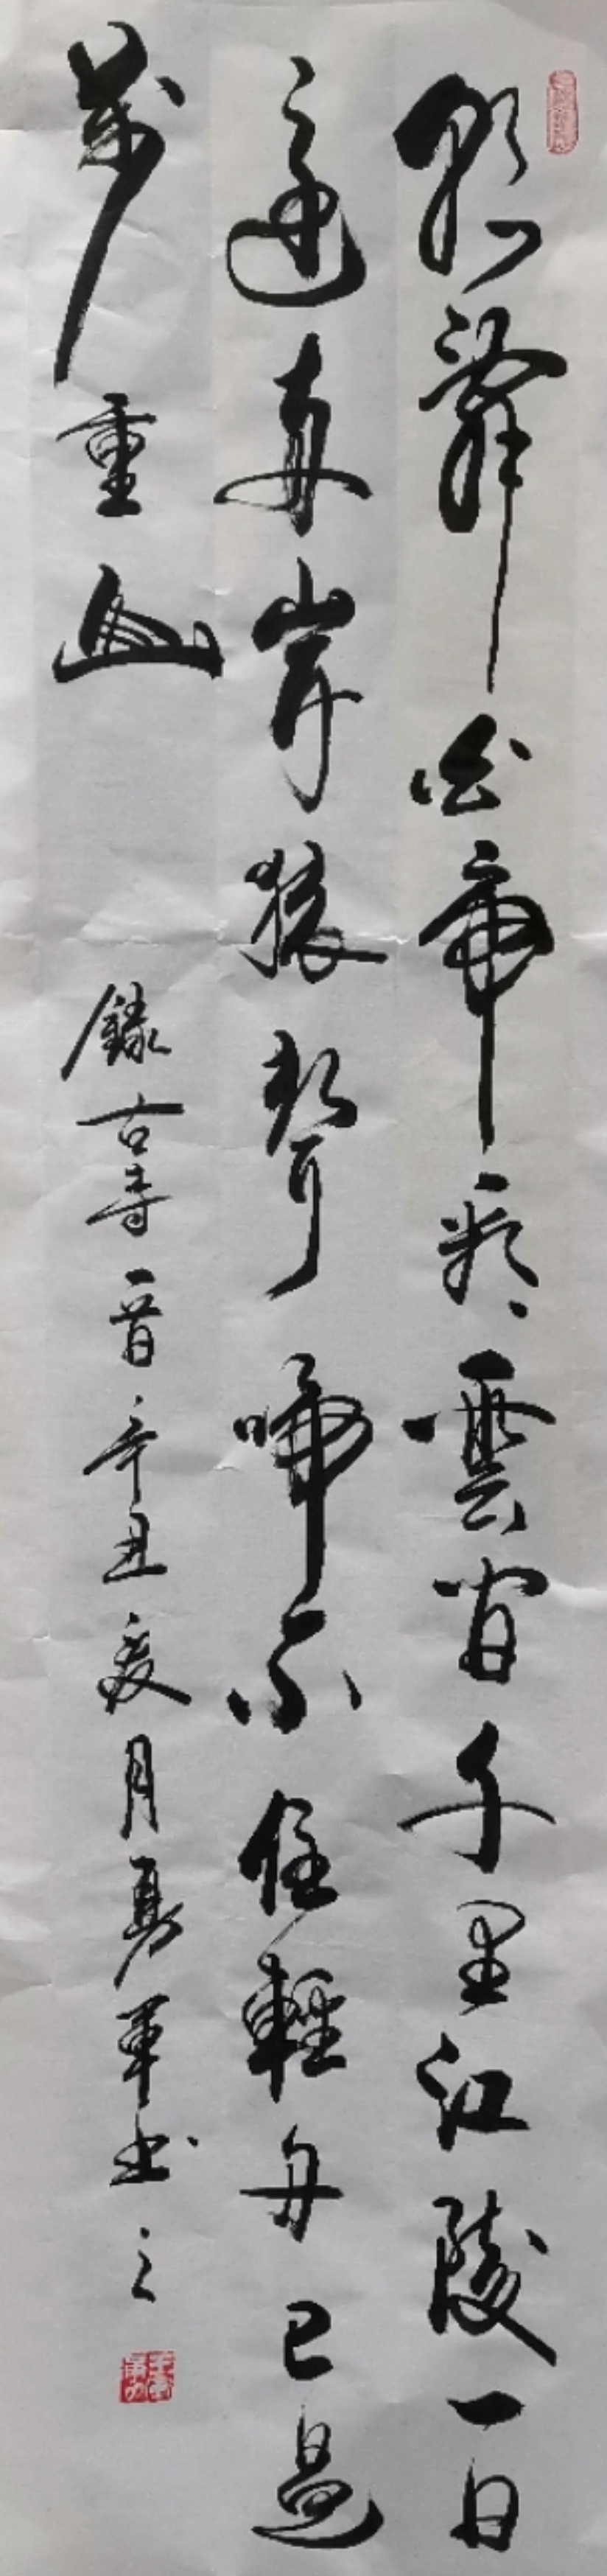 朝辭白帝彩雲間千里江陵一日
還兩岸猿聲啼不住輕舟已過
萬重山
錄古詩一首辛丑夏月勇軍書之